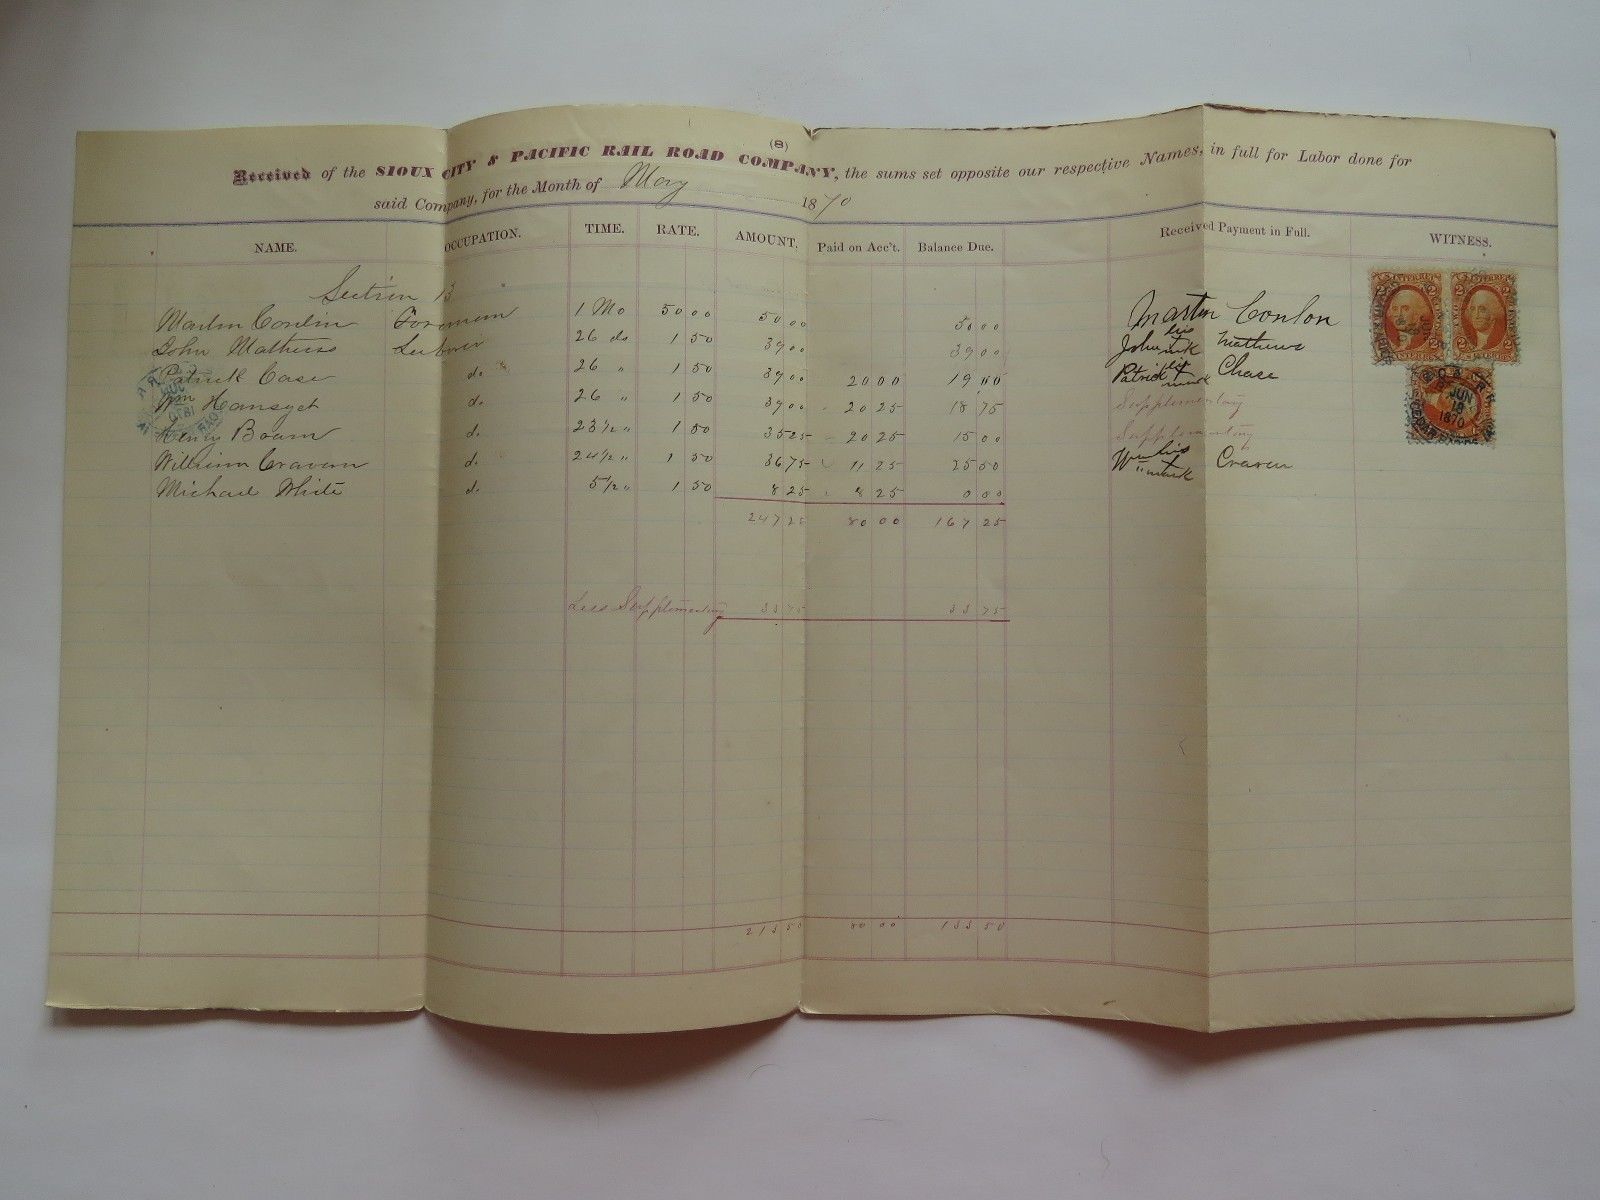 (8)
Received of the SIOUX CITY & PACIFIC RAIL ROAD COMPANY, the sums set opposite our respective Names, in full for Labor done for
said Company, for the Month of May 1870
NAME. OCCUPATION. TIME. RATE. AMOUNT. Paid on Acc't. Balance Due. Received Payment in Full. WITNESS.
Section 13
Martin Conlin Foreman 1 Mo 50 00 50 00 50 00 Martin Conlon
John Mathews Laborer 26 ds 1 50 39 00 39 00 John his mark Mathews
Patrick Case do. 26 " 1 50 39 00 20 00 19 00 Patrick his mark Chase
Wm Hansyet do. 26 " 1 50 39 00 20 25 18 75 Supplementary
Henry Boarn do. 23 1/2 " 1 50 35 25 20 25 15 00 Supplementary
William Cravern do. 24 1/2 " 1 50 36 75 11 25 25 50 Wm his mark Craven
Michael White do. 5 1/2 " 1 50 8 25 8 25 0 00
247 25 80 00 167 25
Less Supplementary 33 75 33 75
213 50 80 00 133 50
JUN
18
1870